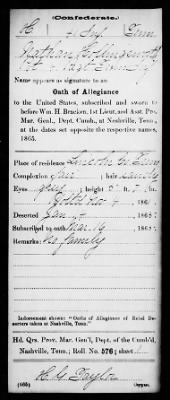 (Confederate.)
H 41 Inf. Tenn
Name appears as signature to an
Oath of Allegiance
to the United States, subscribed and sworn to
before Wm. H. Bracken, 1st Lieut. and Asst. Pro.
Mar. Genl., Dept. Cumb., at Nashville, Tenn.,
at the dates set opposite the respective names,
1865.
Place of residence Lincoln Co Tenn
Complexion fair ; hair sandy
eyes grey ; height 5 ft. 7 in.
186
Deserted Jan 186
Subscribed to oath Mar 14 1865
Remarks: No family
Indorsement shows: "Oaths of Allegiance of Rebel De-
serters taken at Nashville, Tenn."
Hd. Qrs. Prov. Mar. Gen'l, Dept. of the Cumb'd,
Nashville, Tenn.; Roll No. 576; sheet
H. G. Taylor
Copyist.